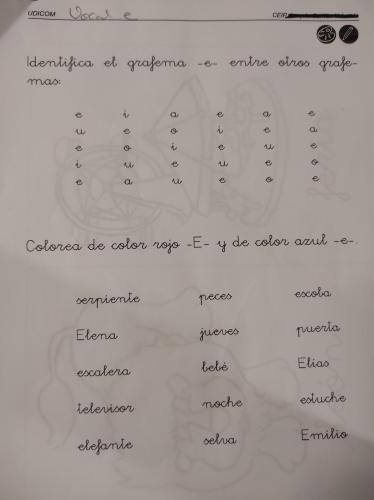 UDICOM Vocal e CEIP
Identifica el grafema -e- entre otros grafe-
mas:
e i a e a e
u e o i e a
e o i e u e
i u e u e o
e a u e o e
Colorea de color rojo -E- y de color azul -e-.
serpiente peces escoba
Elena jueves puerta
escalera bebé Elías
televisor noche estuche
elefante selva Emilio